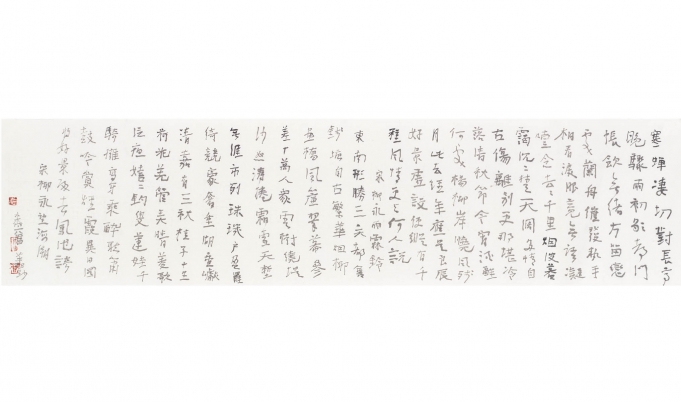 寒蟬淒切對長亭
晚驟雨初歇都門
悵飲無緒方留戀
處蘭舟催發執手
相看淚眼竟無語凝
噎念去去千里烟波暮
靄沉沉楚天闊多情自
古傷離別更那堪冷
落清秋節今宵酒醒
何處楊柳岸曉風殘
月此去經年應是良辰
好景虛設便縱有千
種風情更與何人說
宋柳永雨霖鈴
東南形勝三吳都會
錢塘自古繁華烟柳
畫橋風簾翠幕參
差十萬人家雲樹繞堤
沙怒濤捲霜雪天塹
無涯市列珠璣戶盈羅
綺競豪奢重湖疊巘
清嘉有三秋桂子十里
荷花羌管弄晴菱歌
泛夜嬉嬉釣叟蓮娃千
騎擁高牙乘醉聽簫
鼓吟賞烟霞異日圖
將好景歸去鳳池誇
宋柳永望海潮